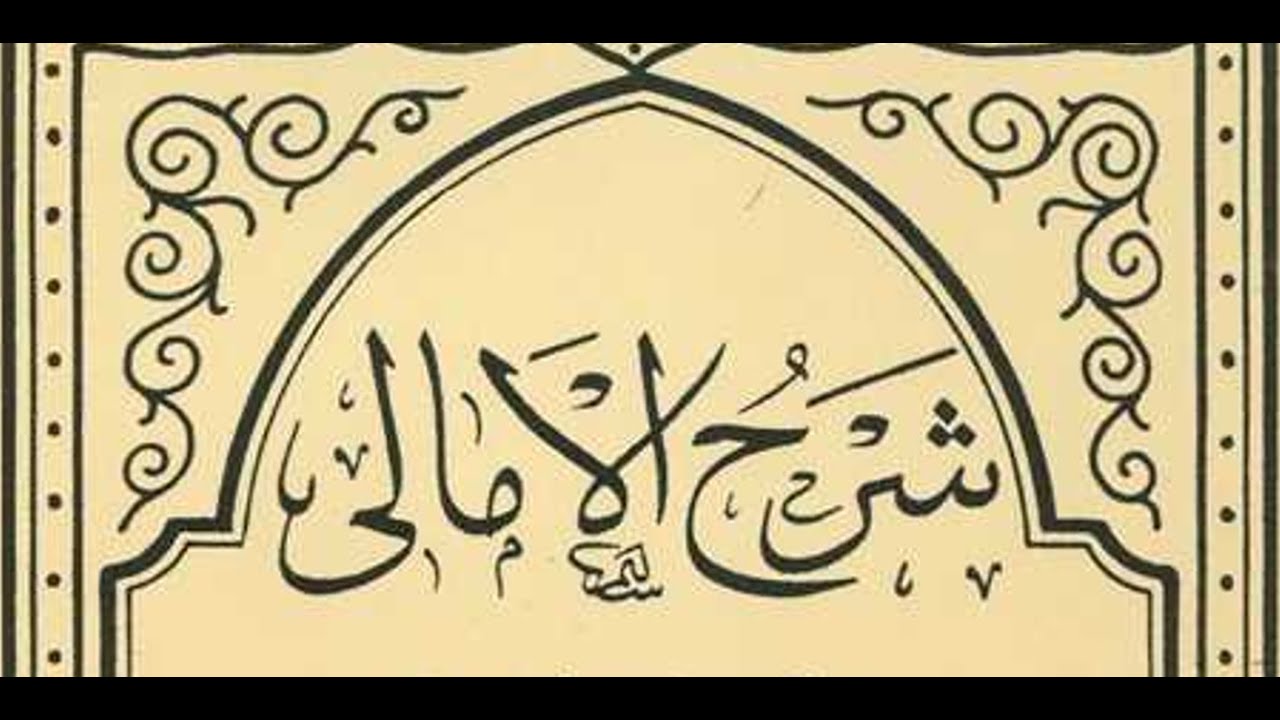 شَرْحُ الْأَمَالِى